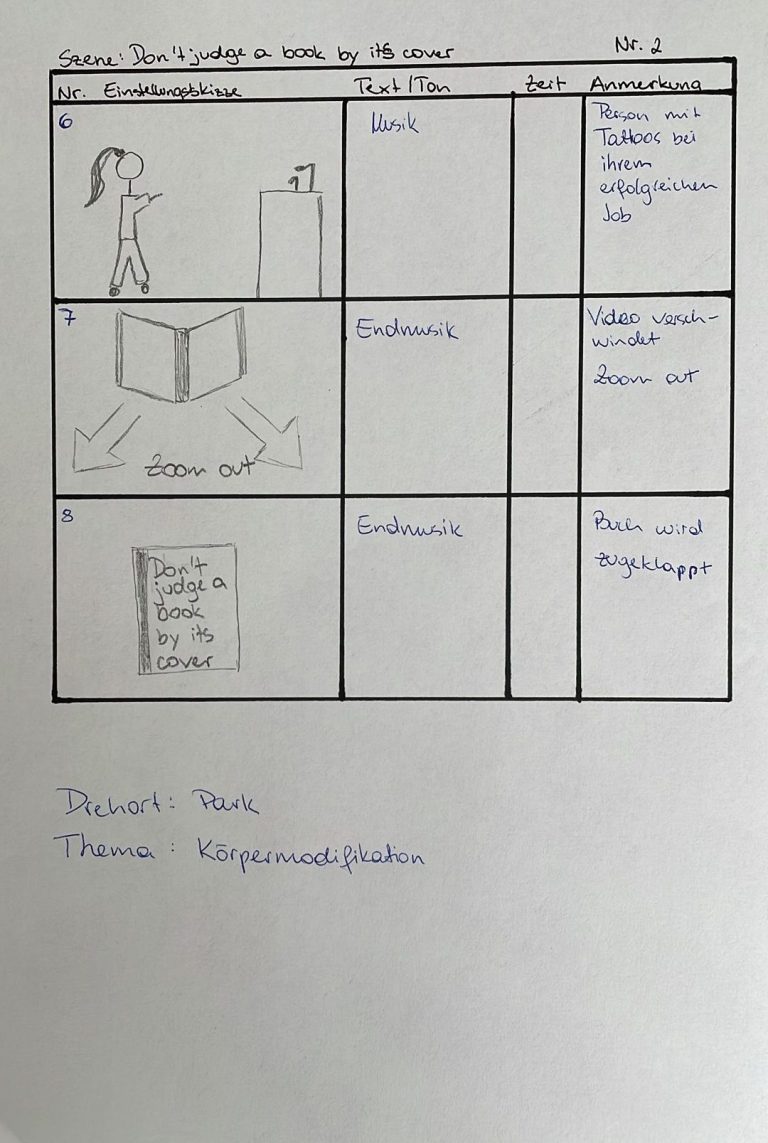 Szene: Don't judge a book by its cover
Nr. 2
Nr. Einstellungsskizze
Text/Ton
Zeit
Anmerkung
6
Musik
Person mit
Tattoos bei
ihrem
erfolgreichen
Job
7
Zoom out
Endmusik
Video versch-
windet
Zoom out
8
Don't
judge a
book
by its
cover
Endmusik
Buch wird
zugeklappt
Drehort: Park
Thema: Körpermodifikation